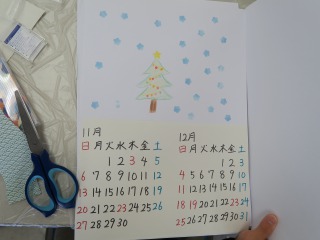 11月
日月火水木金土
1 2 3 4 5
6 7 8 9 10 11 12
13 14 15 16 17 18 19
20 21 22 23 24 25 26
27 28 29 30
12月
日月火水木金土
1 2 3
4 5 6 7 8 9 10
11 12 13 14 15 16 17
18 19 20 21 22 23 24
25 26 27 28 29 30 31